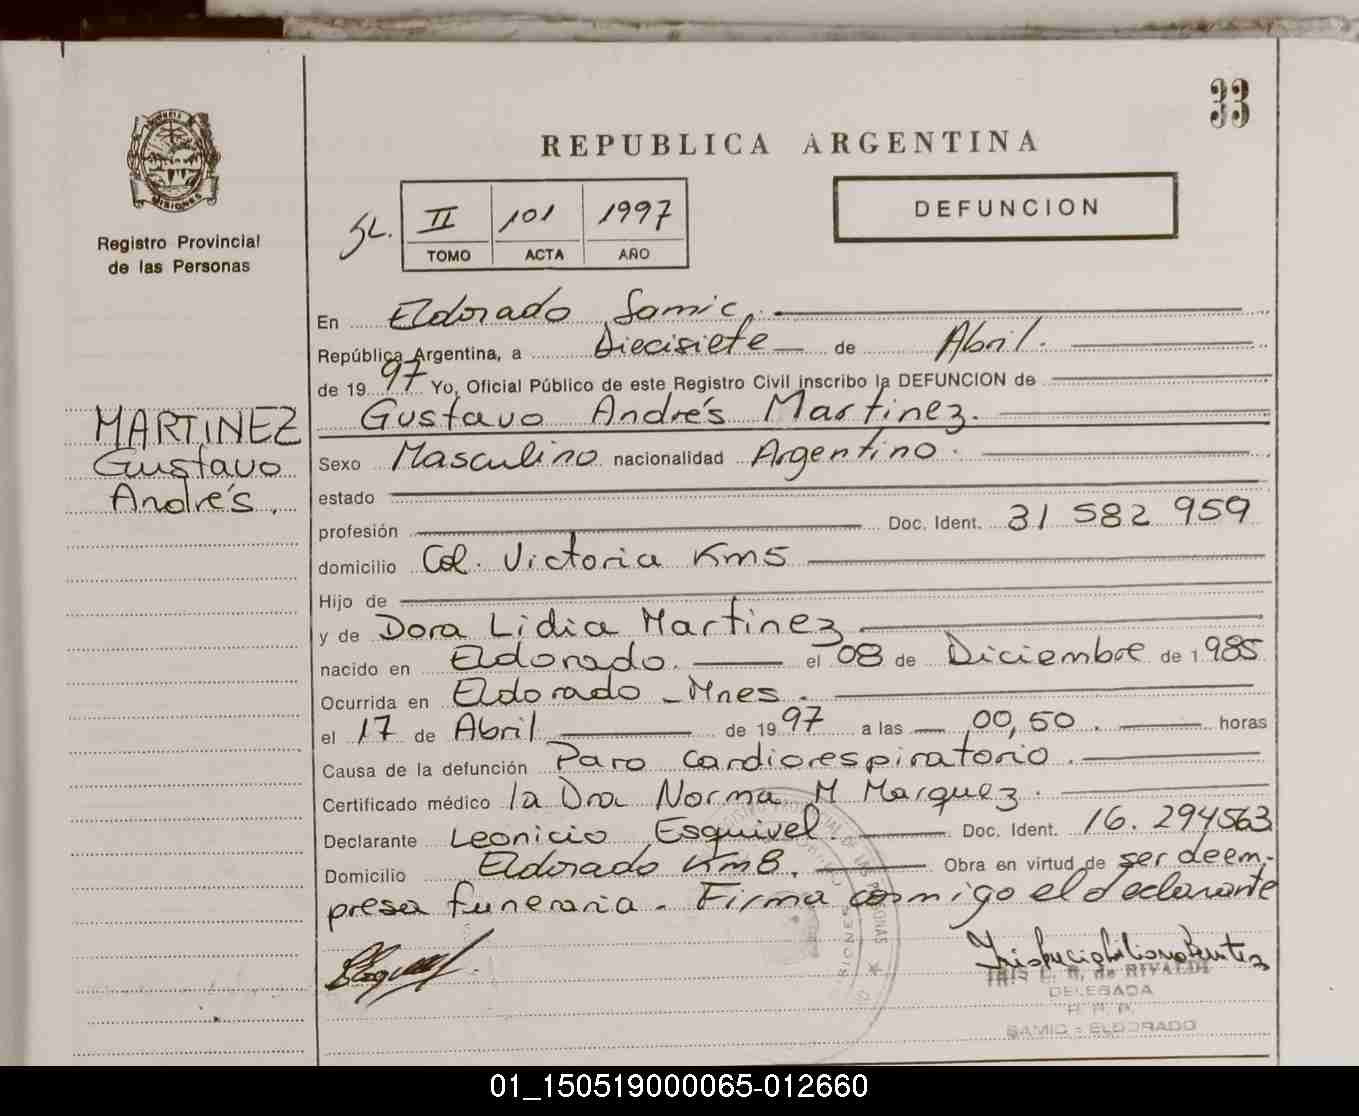 33
REPUBLICA ARGENTINA
MISIONES
Registro Provincial
de las Personas
SL. II 101 1997
TOMO ACTA AÑO
DEFUNCION
En Eldorado Samic.
República Argentina, a Diecisiete de Abril.
de 19 97 Yo, Oficial Público de este Registro Civil inscribo la DEFUNCION de
Gustavo Andrés Martinez.
MARTINEZ
Gustavo
Andrés.
Sexo Masculino nacionalidad Argentino.
estado
profesión Doc. Ident. 31 582 959
domicilio Col. Victoria Km5
Hijo de
y de Dora Lidia Martinez
nacido en Eldorado. el 08 de Diciembre de 1985
Ocurrida en Eldorado - Mnes.
el 17 de Abril de 19 97 a las 00,50. horas
Causa de la defunción Paro cardiorespiratorio.
Certificado médico la Dra Norma M Marquez.
Declarante Leonicio Esquivel. Doc. Ident. 16.294563
Domicilio Eldorado Km8. Obra en virtud de ser de em-
presa funeraria. Firma conmigo el declarante
IRIS L. B. de RIVALDI
DELEGADA
R. P. P.
SAMIC - ELDORADO
01_150519000065-012660